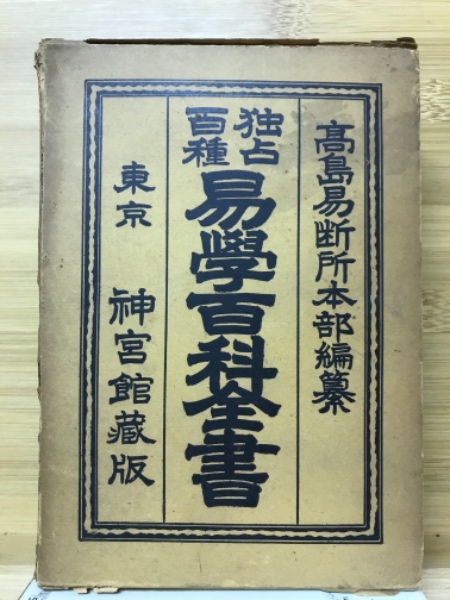 高島易断所本部編纂
独占
百種
易學百科全書
東京
神宮館藏版